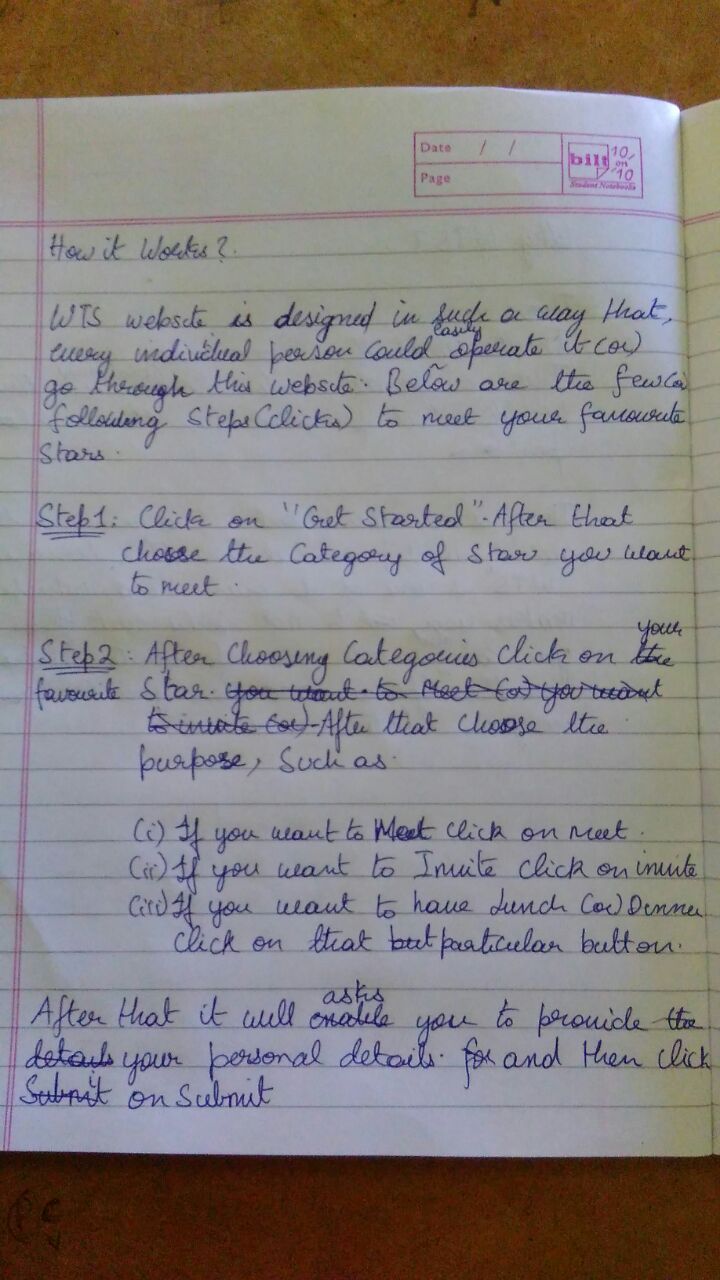 Date / /
Page
bilt 10/ on 10
Student Notebooks
How it Works?.
WTS website is designed in such a way that,
every individual person could easily operate it (or)
go through this website. Below are the few (or)
following Steps (clicks) to meet your favourite
Stars.
Step1: Click on "Get Started". After that
choose the Category of Star you want
to meet.
Step2: After Choosing Categories Click on the your
favourite Star. you want to Meet (or) you want
to invite (or). After that choose the
purpose, Such as.
(i) If you want to Meet click on meet.
(ii) If you want to Invite click on invite
(iii) If you want to have Lunch (or) Dinner
click on that but particular button.
After that it will enable asks you to provide the
details your personal details. for and then click
Submit on Submit